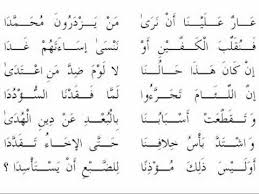 عَارٌ عَلَيْنَا أَنْ نَرَىٰ مَنْ يَزْدَرُونَ مُحَمَّدَا
فَنُقَلِّبَ الْكَفَّيْنِ أَوْ نَنْسَىٰ إِسَاءَتَهُمْ غَدَا
إِنْ كَانَ هَذَا حَالُنَا لَا لَوْمَ ضِدَّ مَنِ اعْتَدَىٰ
إِنَّ اللِّئَامَ تَجَرَّءُوا لَمَّا فَقَدْنَا السُّؤْدَدَا
وَتَقَطَّعَتْ أَسْبَابُنَا بِالْبُعْدِ عَنْ دِينِ الْهُدَىٰ
وَاشْتَدَّ بَأْسُ خِلَافِنَا حَتَّى الْإِخَاءُ تَقَدَّدَا
أَوَلَيْسَ ذَلِكَ مُؤْذِنًا لِلضَّبْعِ أَنْ يَسْتَأْسِدَا ؟